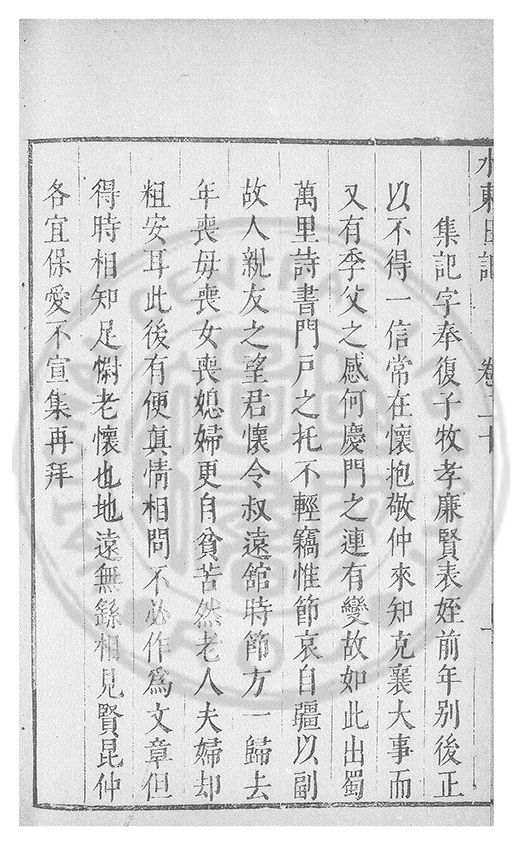 水東日記 卷二十
集記字奉復子牧孝廉賢表姪前年別後正
以不得一信常在懷抱敬仲來知克襄大事而
又有季父之感何慶門之連有變故如此出蜀
萬里詩書門戶之托不輕竊惟節哀自疆以副
故人親友之望君懷令叔遠館時節方一歸去
年喪母喪女喪媳婦更自貧苦然老人夫婦却
粗安耳此後有便真情相問不必作為文章但
得時相知足慰老懷也地遠無繇相見賢昆仲
各宜保愛不宣集再拜